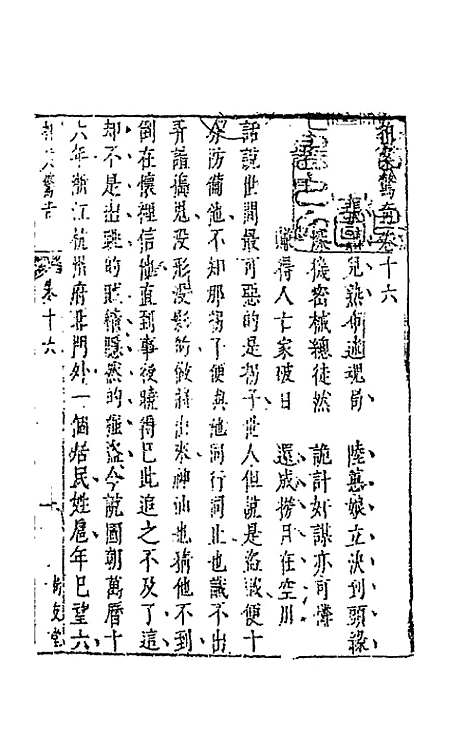 拍案驚奇卷十六
張溜兒熟布迷魂局　陸蕙娘立決到頭緣
深機密械總徒然　詭計奸謀亦可憐
賺得人亡家破日　還成撈月在空川
話說世間最可惡的是拐子世人但說是盜賊便十
分防備他不知那拐子便與他同行同止也識不出
弄諠搗鬼沒形沒影的做將出來神仙也猜他不到
倒在懷裡信他直到事後曉得已此追之不及了這
却不是出跳的賊精隱然的強盜今說國朝萬曆十
六年浙江杭州府北門外一個居民姓扈年已望六
拍案驚奇　卷十六　一　尚友堂